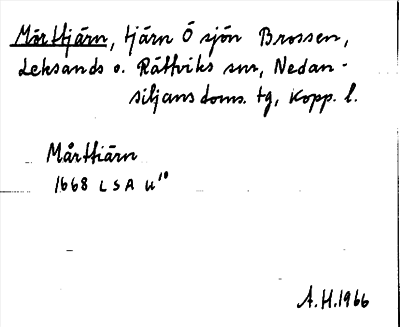 Mårttjärn, tjärn Ö sjön Brossen,
Leksands o. Rättviks snr, Nedan-
siljans doms. tg, Kopp. l.
Mårttiärn
1668 LSA U¹⁰
A.H.1966